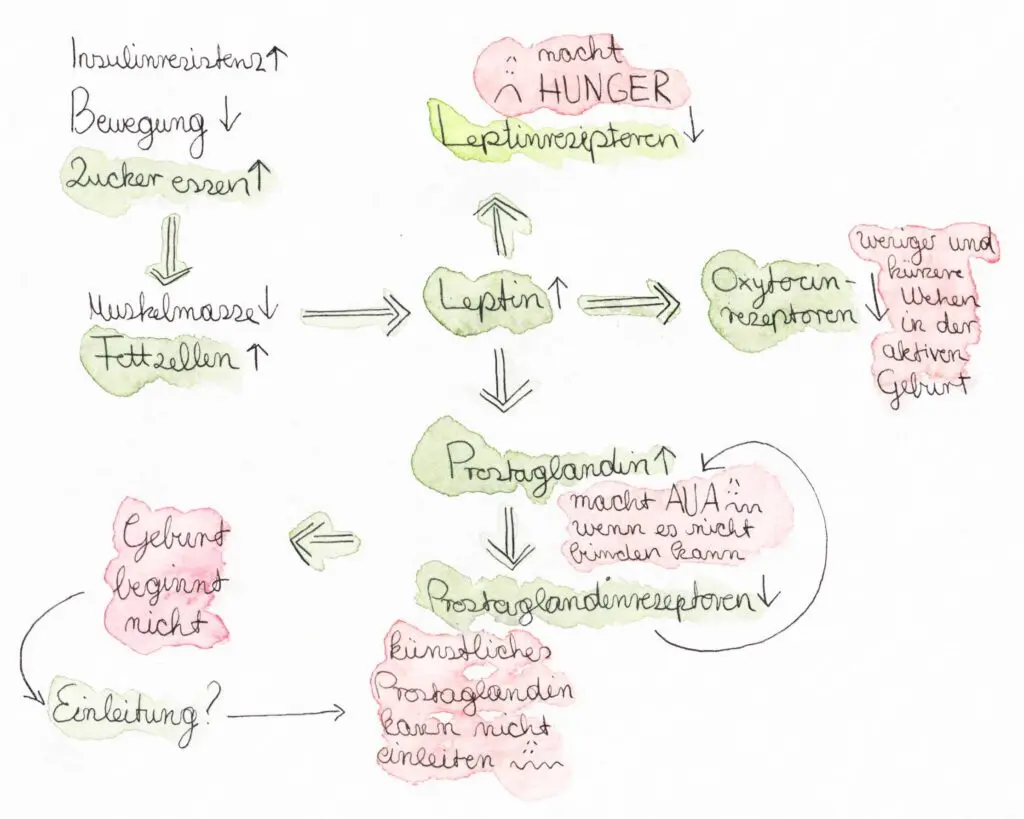 Insulinresistenz↑
Bewegung↓
Zucker essen↑
Muskelmasse↓
Fettzellen↑
macht
HUNGER
Leptinrezeptoren↓
Leptin↑
Oxytocin-
rezeptoren↓
weniger und
kürzere
Wehen
in der
aktiven
Geburt
Prostaglandin↑
macht AUA
wenn es nicht
binden kann
Prostaglandinrezeptoren↓
Geburt
beginnt
nicht
Einleitung?
künstliches
Prostaglandin
kann nicht
einleiten